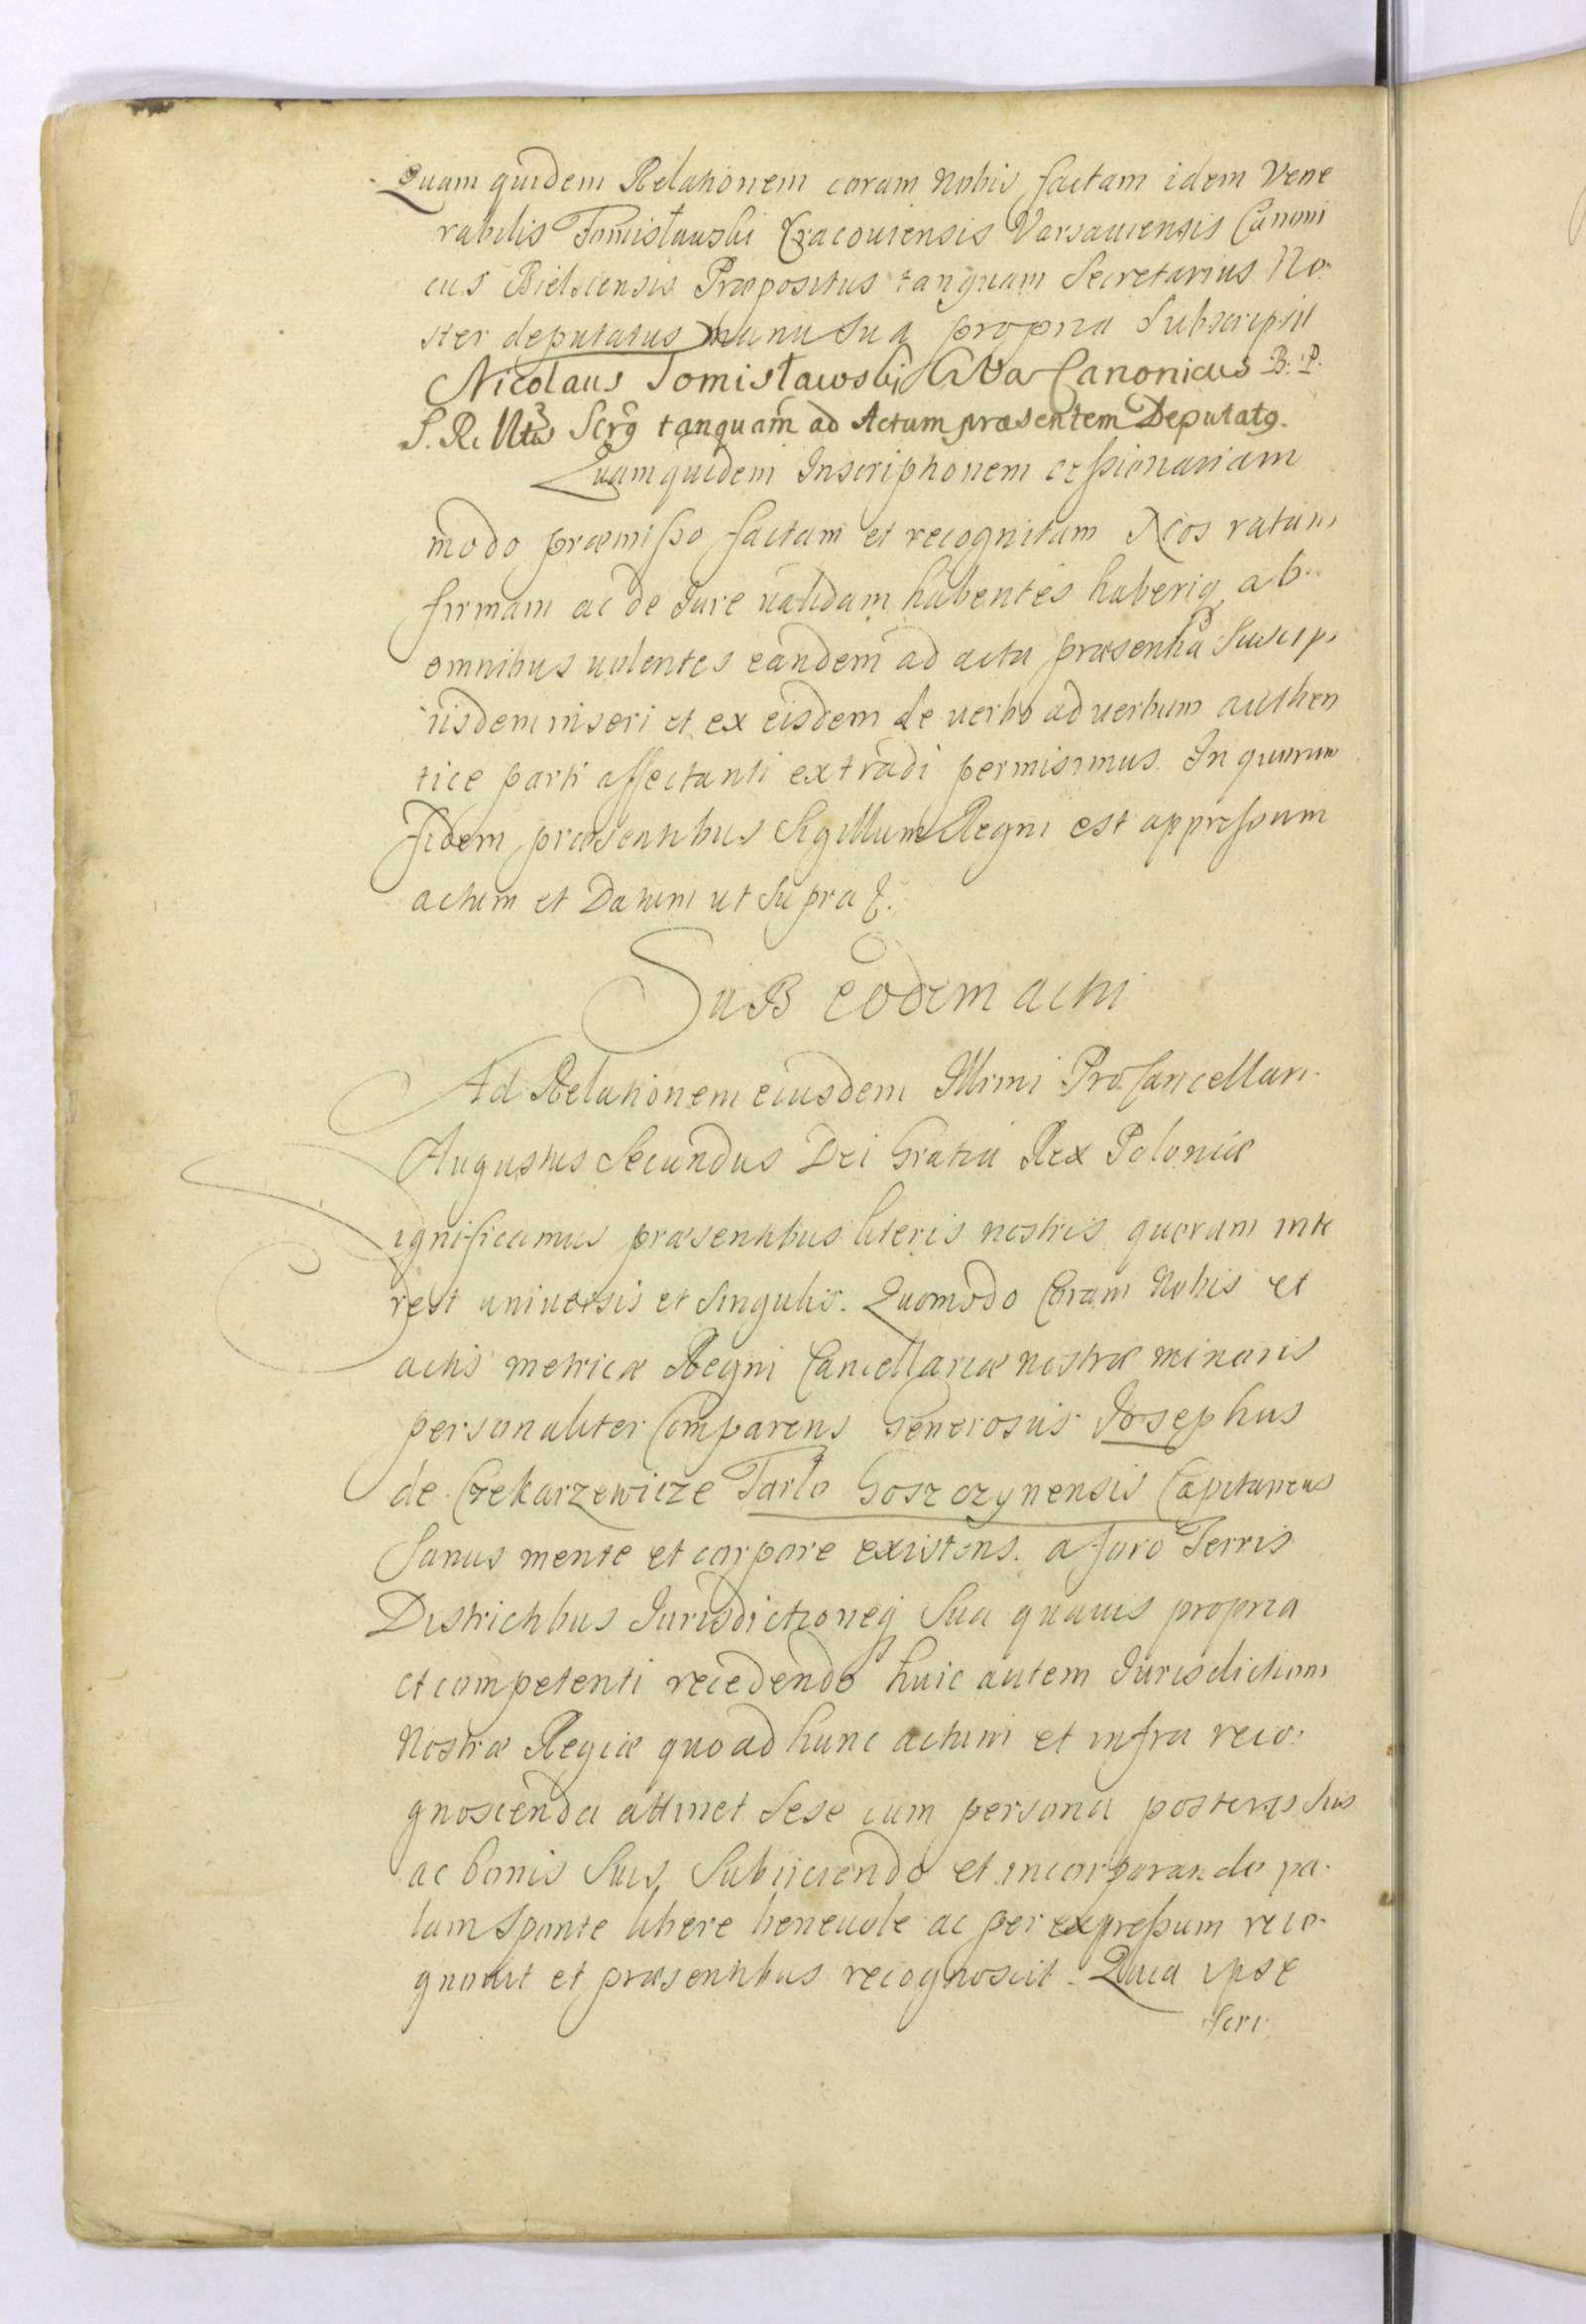 Quam quidem Relationem coram Nobis factam idem Vene
rabilis Tomisławski Cracouiensis Varsauiensis Canoni
cus Bielscensis Præpositus tanquam Secretarius No
ster deputatus manu sua propria subscripsit
Nicolaus Tomisławski Canonicus B. P.
S. R. Mtis Scrg tanquam ad Actum præsentem Deputatg.
Quam quidem Inscriptionem cessionariam
modo præmisso factam et recognitam Nos ratam
firmam ac de Jure ualidam habentes haberiq ab
omnibus uolentes eandem ad acta præsentia suscipi
iisdem inseri et ex eisdem de uerbo ad uerbum authen
tice parti affectanti extradi permisimus. In quorum
fidem præsentibus Sigillum Regni est appressum
actum et Datum ut supra
Sub eodem actu
Ad Relationem eiusdem Illrmi ProCancellari
Augustus Secundus Dei Gratia Rex Poloniæ
Significamus præsentibus literis nostris quorum inte
rest uniuersis et singulis. Quomodo Coram Nobis et
actis metricæ Regni Cancellariæ nostræ minoris
personaliter Comparens Generosus Josephus
de Czekarzewicze Tarło Goszczynensis Capitaneus
Sanus mente et corpore existens. a foro Terris
Districtibus Jurisdictioneq sua quauis propria
et competenti recedendo huic autem Jurisdictioni
Nostræ Regiæ quo ad hunc actum et infra reco:
gnoscenda attinet sese cum persona posteris suis
ac bonis suis subiiciendo et incorporando pa.
lam sponte libere beneuole ac per expressum reco.
gnouit et præsentibus recognoscit. Quia ipse